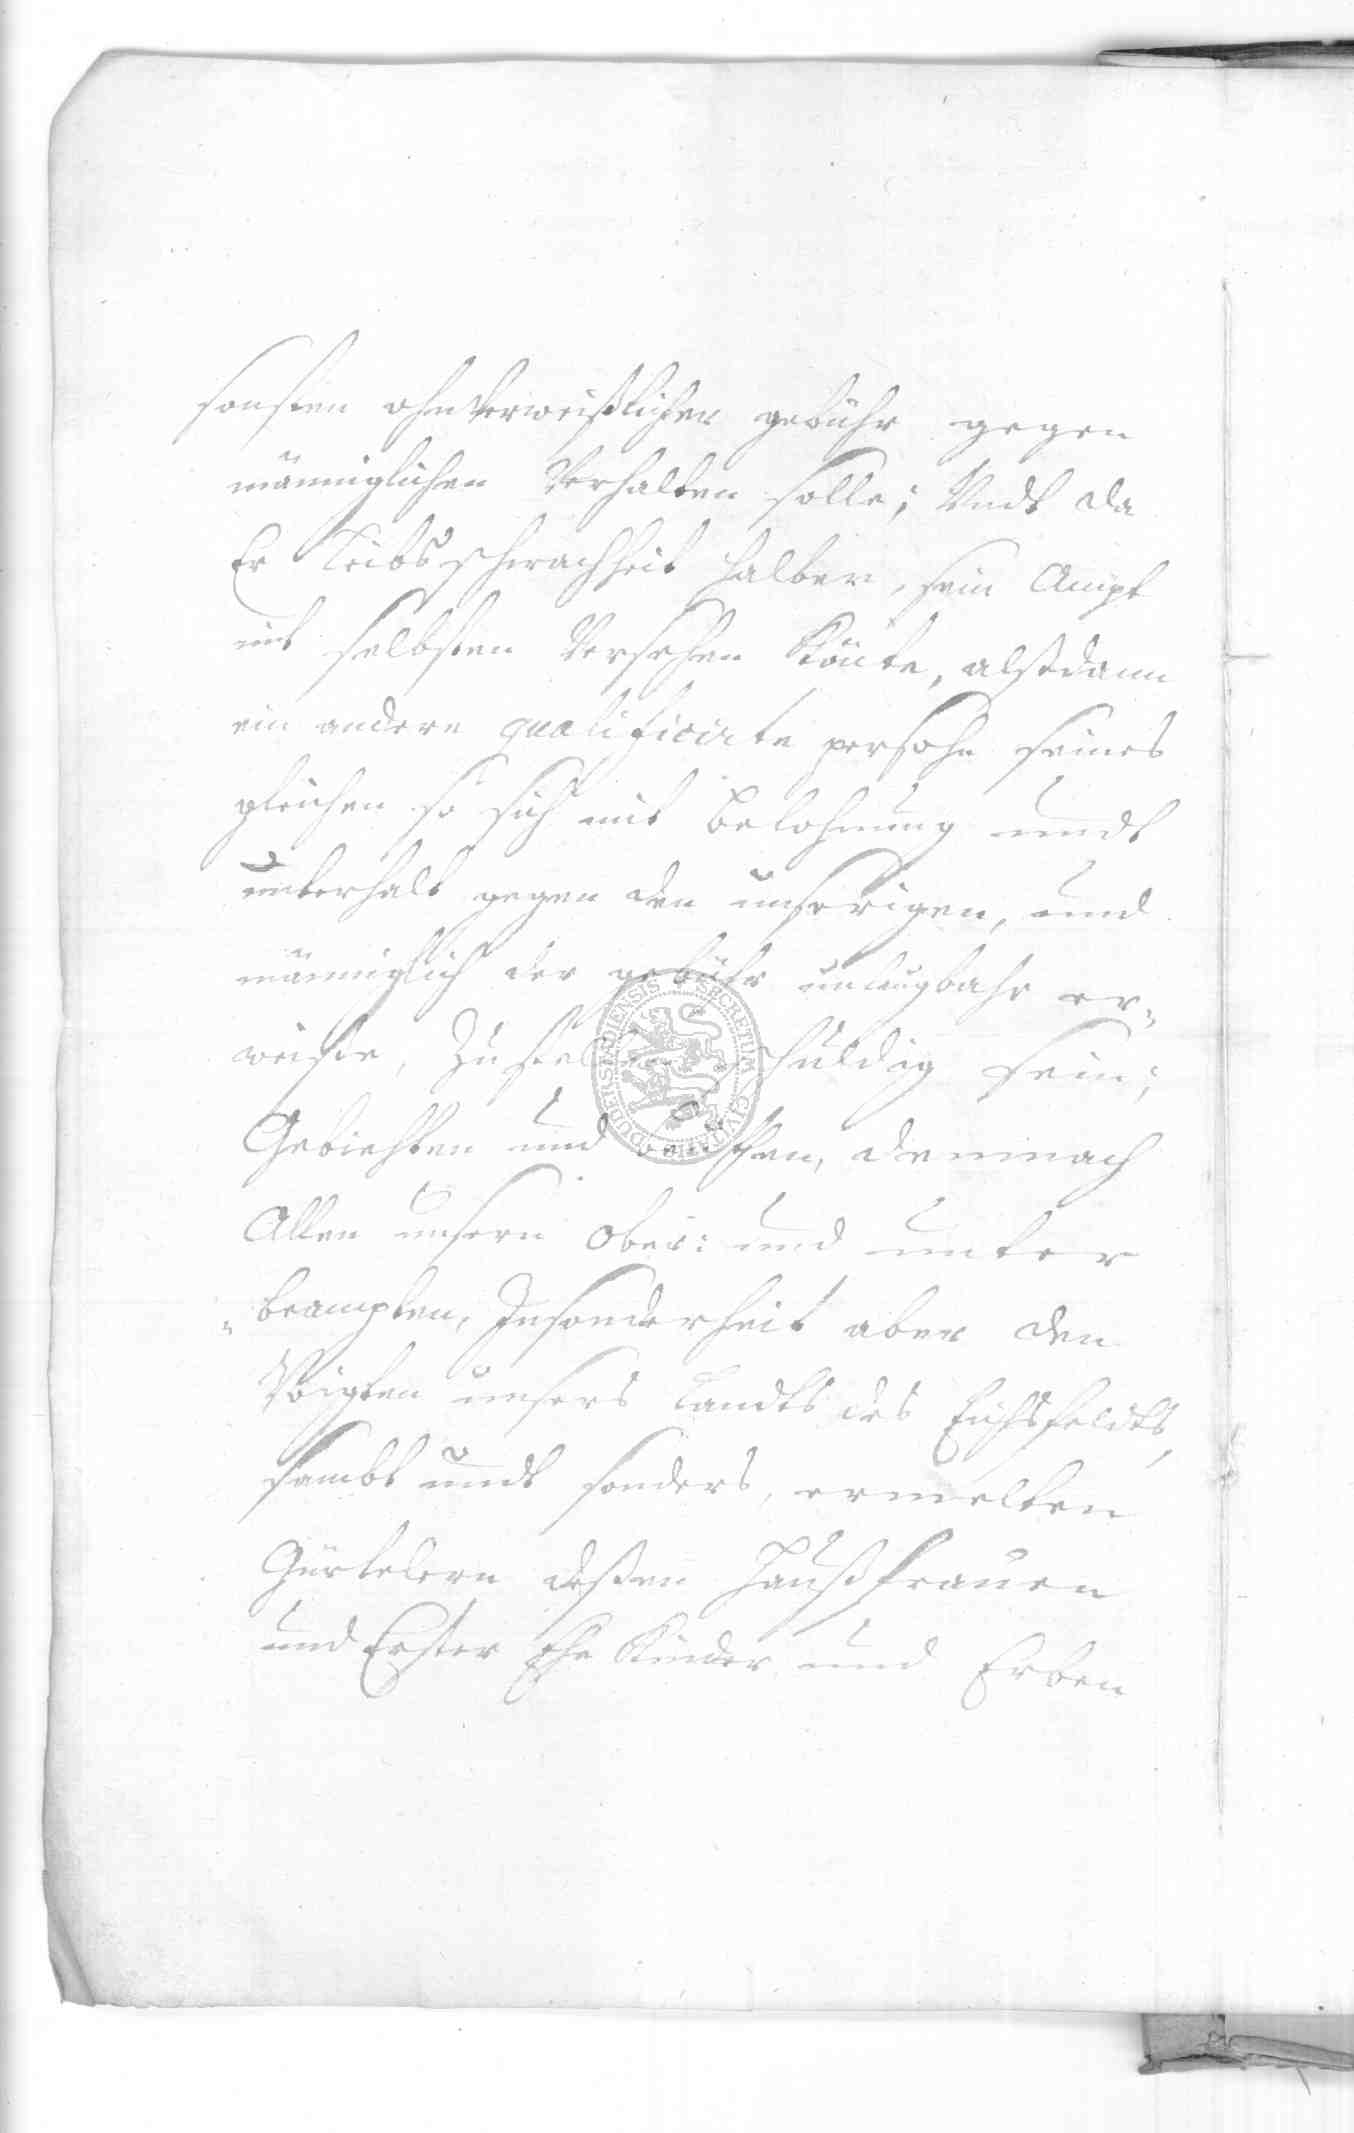 sonsten ohnverweißlicher gebühr gegen
männiglichen verhalten solle; Undt da
Er Leibsschwachheit halber, sein Ampt
nit selbsten versehen könte, alßdann
ein andere qualificirte persohn seines
gleichen so sich mit belohnung undt
unterhalt gegen den unserigen, und
männiglich der gebühr unclagbahr er-
weiße, Zu stellen schuldig sein;
Gebiehten und demnach
Allen unsern Ober: und unter
beampten, Insonderheit aber den
Voigten unsers Landts des Eichsfeldts,
sambt undt sonders, ermelten
Gürtelern deßen Haußfrauen
und Erster Ehe Kinder und Erben
SECRETUM CIVITATIS DUDERSTADIENSIS